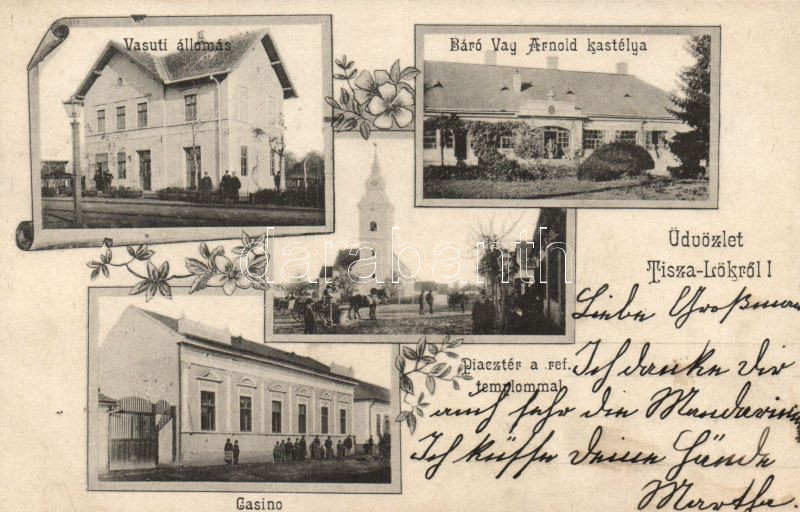 Vasuti állomás
Báró Vay Arnold kastélya
Üdvözlet
Tisza-Lökről!
darabanth
Piacztér a ref.
templommal
Casino
Liebe Großmama
Ich danke dir
auch sehr die Mandarinen
Ich küsse deine Hände
Martha.